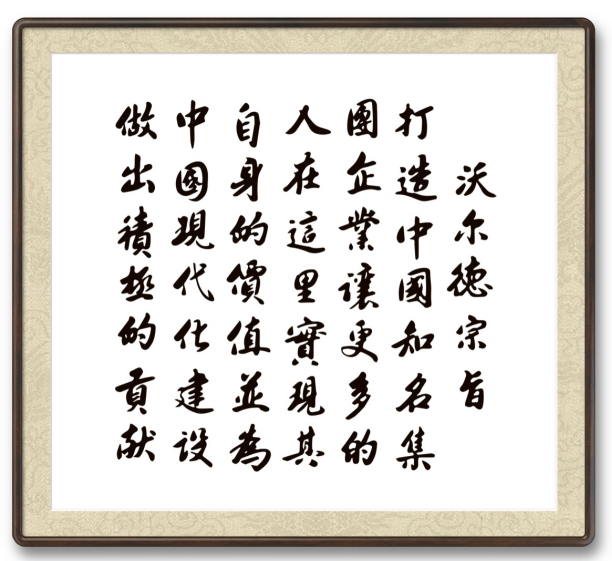 沃尔德宗旨
打造中國知名集
團企業讓更多的
人在這里實現其
自身的價值並為
中國現代化建設
做出積極的貢献